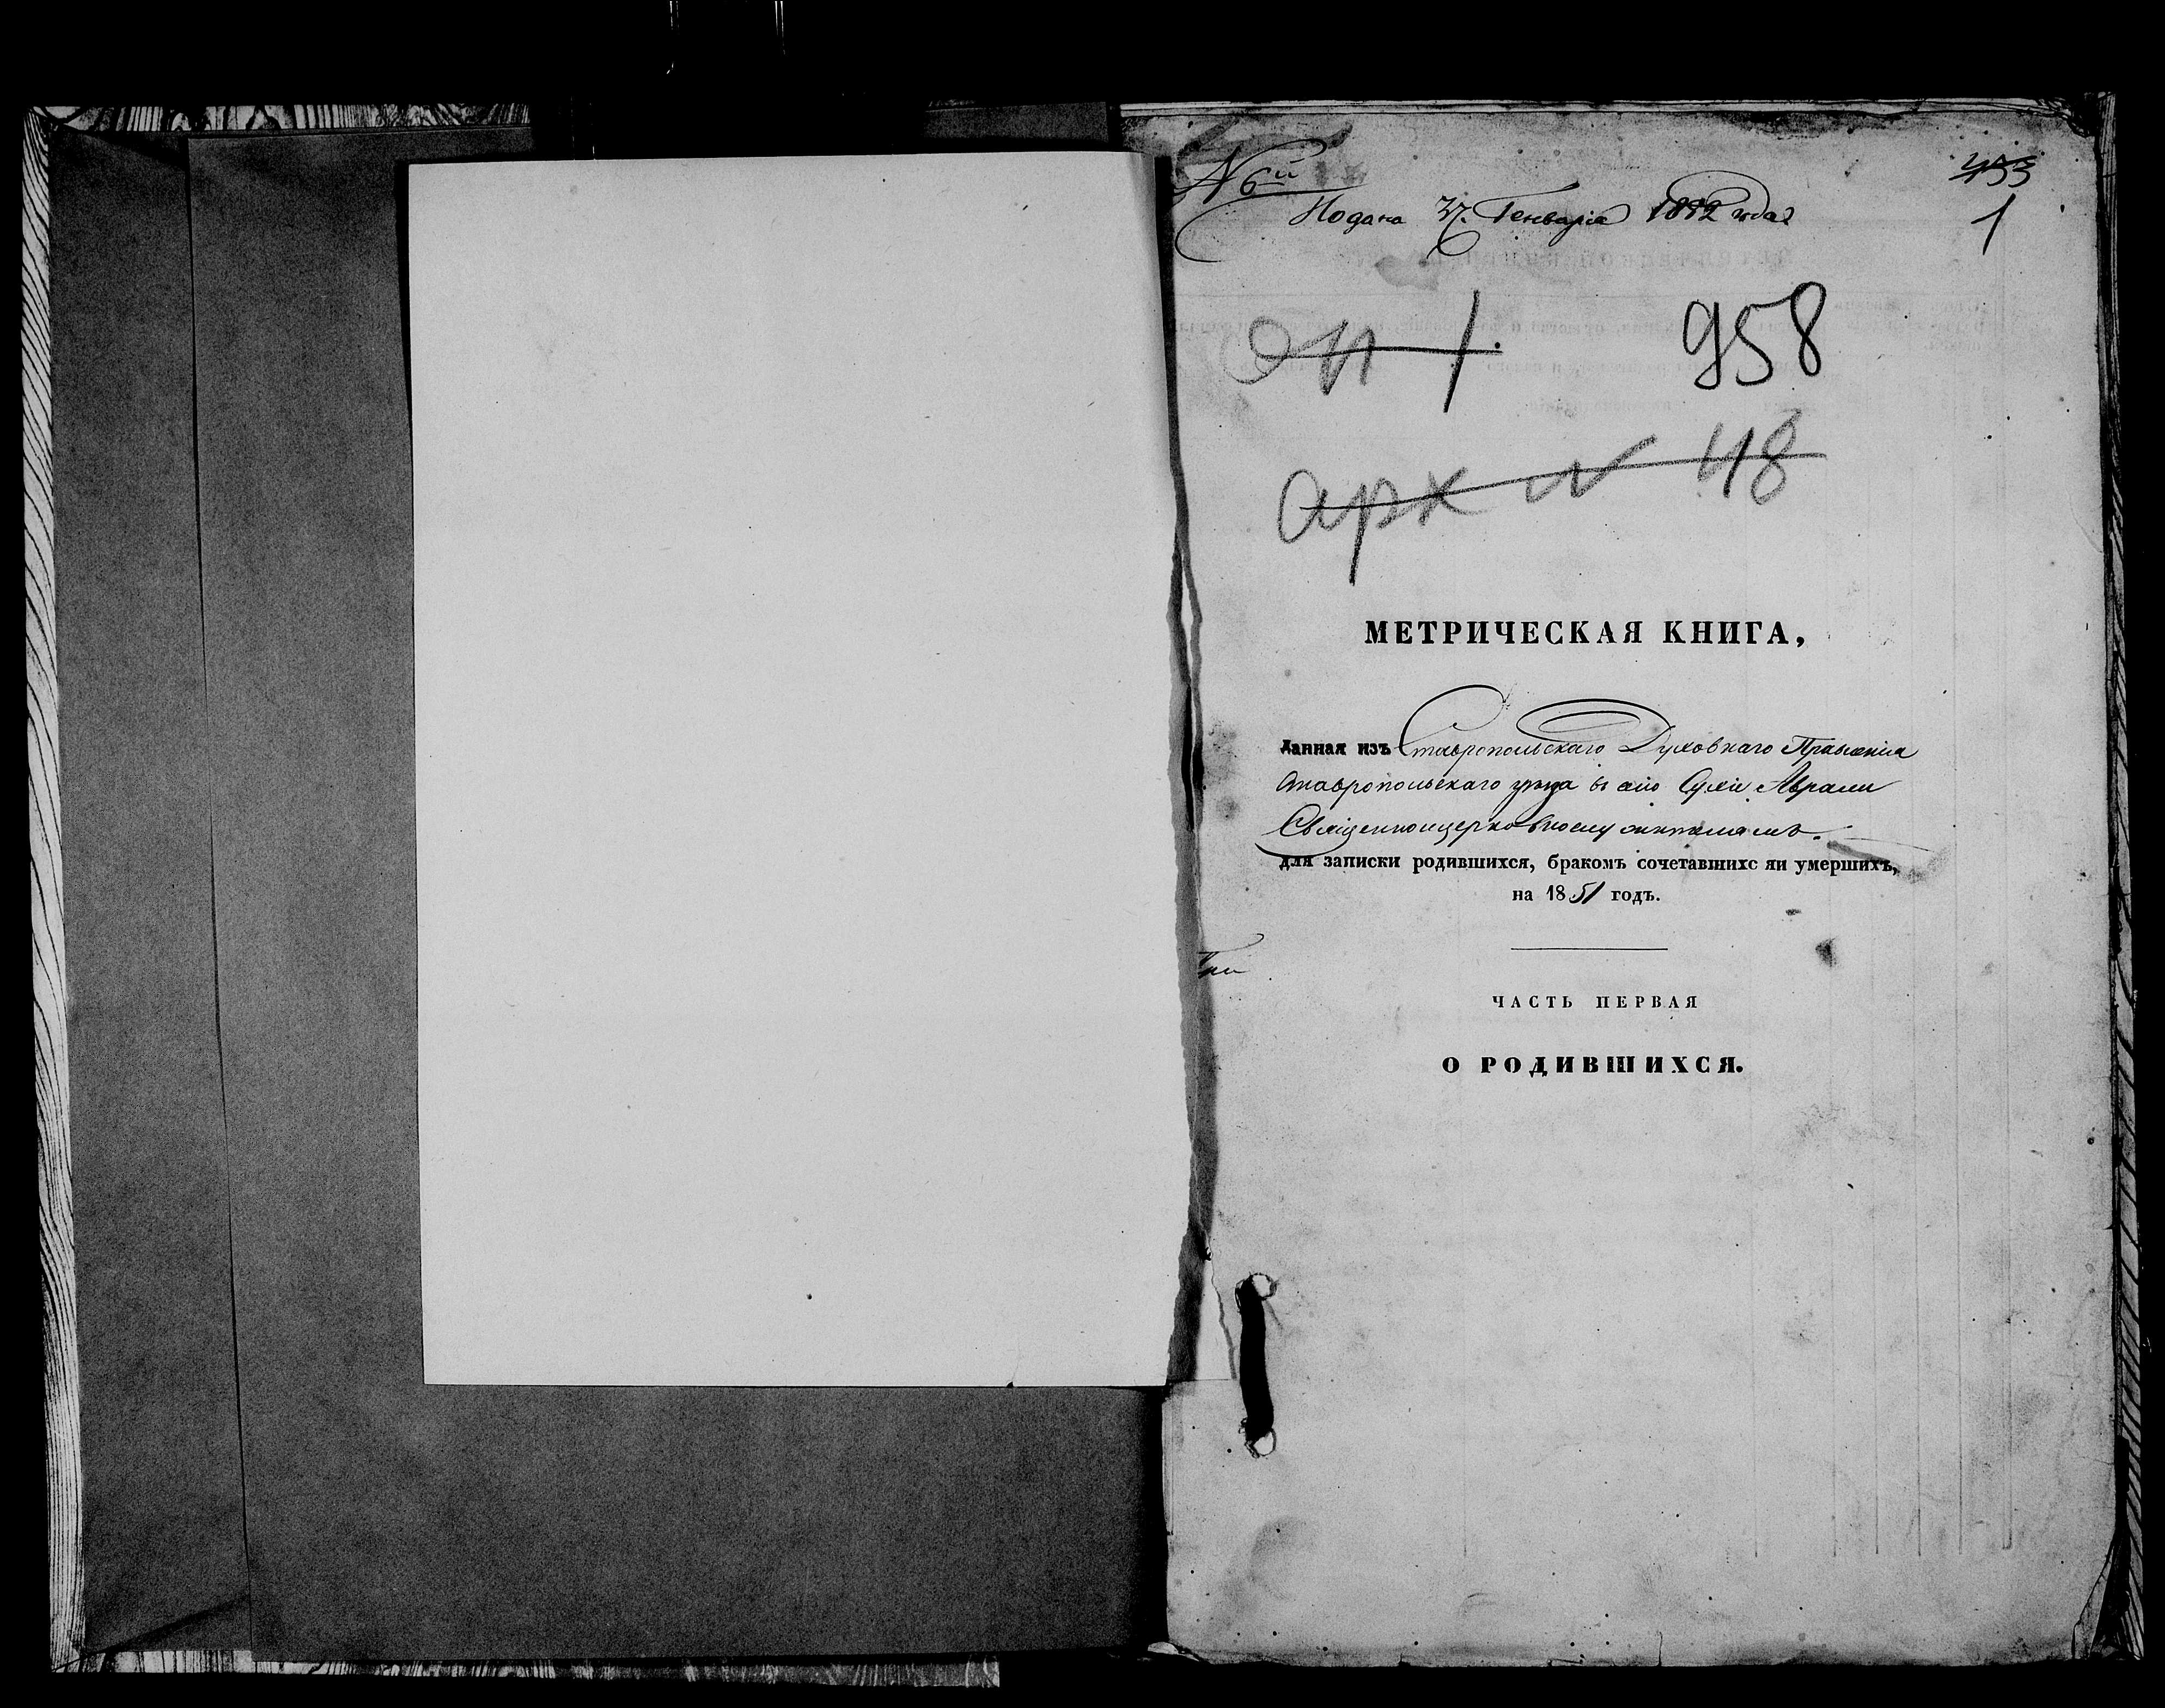 № 6й
455
Подана 31. Генваря 1852 года
1
оп 1.
958
арх № 48
МЕТРИЧЕСКАЯ КНИГА,
данная изъ Ставропольскаго Духовнаго Правленія
Ставропольскаго уезда въ село Сухіе Аврали
Священноцерковнослужителямъ.
для записки родившихся, бракомъ сочетавшихс яи умершихъ,
на 1851 годъ.
ЧАСТЬ ПЕРВАЯ
О РОДИВШИХСЯ.